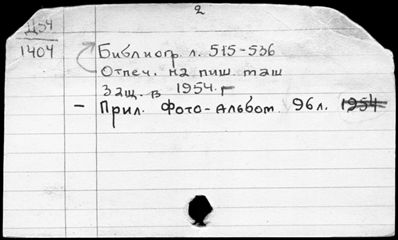 2
Д54
1404
Библиогр. л. 515-536
Отпеч. на пиш. маш
Защ. в 1954 г
- Прил. Фото-альбом. 96 л. 1954